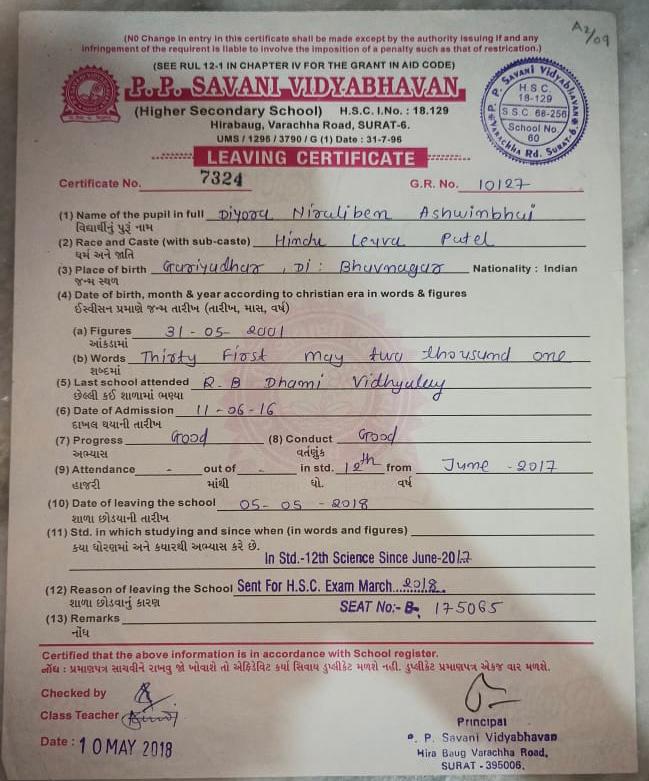 A2/09
(NO Change in entry in this certificate shall be made except by the authority issuing if and any
infringement of the requirent is liable to involve the imposition of a penalty such as that of restrication.)
(SEE RUL 12-1 IN CHAPTER IV FOR THE GRANT IN AID CODE)
P. P. SAVANI VIDYABHAVAN
(Higher Secondary School) H.S.C. I.No. : 18.129
Hirabaug, Varachha Road, SURAT-6.
UMS / 1296 / 3790 / G (1) Date : 31-7-96
P. P. Savani Vidyabhavan
H.S.C.
18-129
S.S.C. 66-256
School No.
60
Varachha Rd. Surat-6.
LEAVING CERTIFICATE
Certificate No. 7324 G.R. No. 10127
(1) Name of the pupil in full Diyora Niraliben Ashwinbhai
વિદ્યાર્થીનું પુરૂં નામ
(2) Race and Caste (with sub-caste) Hindu Leyva Patel
ધર્મ અને જાતિ
(3) Place of birth Gariyadhar, Di: Bhavnagar Nationality : Indian
જન્મ સ્થળ
(4) Date of birth, month & year according to christian era in words & figures
ઈસ્વીસન પ્રમાણે જન્મ તારીખ (તારીખ, માસ, વર્ષ)
(a) Figures 31-05-2001
આંકડામાં
(b) Words Thirty First may two thousand one
શબ્દમાં
(5) Last school attended R.B Dhami Vidhyalay
છેલ્લી કઈ શાળામાં ભણ્યા
(6) Date of Admission 11-06-16
દાખલ થયાની તારીખ
(7) Progress Good (8) Conduct Good
અભ્યાસ વર્તણુંક
(9) Attendance - out of - in std. 12th from June - 2017
હાજરી માંથી ધો. વર્ષ
(10) Date of leaving the school 05-05-2018
શાળા છોડયાની તારીખ
(11) Std. in which studying and since when (in words and figures)
કયા ધોરણમાં અને કયારથી અભ્યાસ કરે છે.
In Std.-12th Science Since June-2017
(12) Reason of leaving the School Sent For H.S.C. Exam March 2018
શાળા છોડવાનું કારણ
SEAT No:- B- 175065
(13) Remarks
નોંધ
Certified that the above information is in accordance with School register.
નોંધ : પ્રમાણપત્ર સાચવીને રાખવુ જો ખોવાશે તો એફિડેવિટ કર્યા સિવાય ડુપ્લીકેટ મળશે નહી. ડુપ્લીકેટ પ્રમાણપત્ર એકજ વાર મળશે.
Checked by
Class Teacher
Date : 10 MAY 2018
Principal
P. P. Savani Vidyabhavan
Hira Baug Varachha Road,
SURAT - 395006.